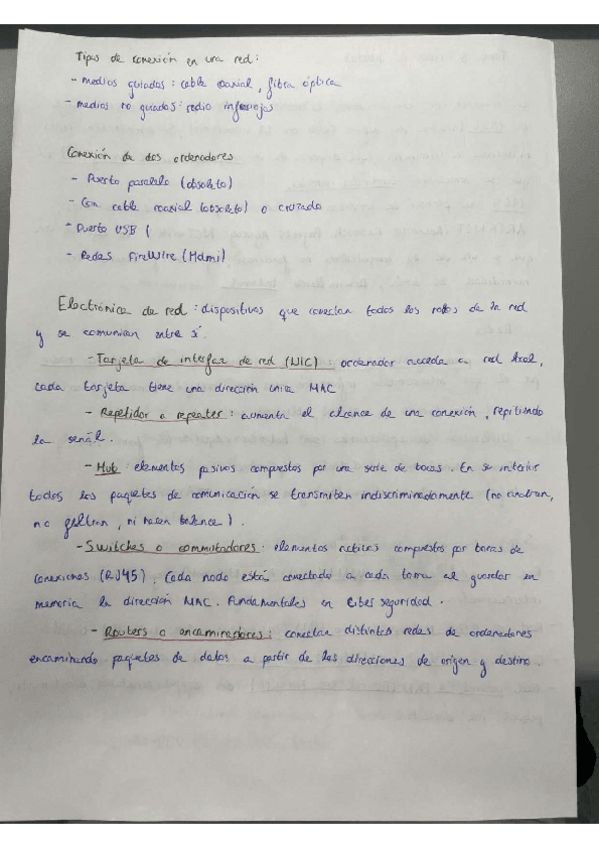 Tipos de conexión en una red:
- medios guiados: cable coaxial, fibra óptica
- medios no guiados: radio infrarrojos
Conexión de dos ordenadores
- Puerto paralelo (obsoleto)
- Con cable coaxial (obsoleto) o cruzado
- Puerto USB (
- Redes FireWire (Hdmi)
Electrónica de red: dispositivos que conectan todos los nodos de la red
y se comunican entre sí.
- Tarjeta de interfaz de red (NIC): ordenador acceda a red local,
cada tarjeta tiene una dirección única MAC
- Repetidor o repeater: aumenta el alcance de una conexión, repitiendo
la señal.
- Hub: elementos pasivos compuestos por una serie de bocas. En se interior
todos los paquetes de comunicación se transmiten indiscriminadamente (no analizan,
no filtran, ni hacen balance).
- Switches o conmutadores: elementos activos compuestos por bocas de
conexiones (RJ45). Cada nodo está conectado a cada toma al guardar en
memoria la dirección MAC. Fundamentales en Ciberseguridad.
- Routers o encaminadores: conectan distintas redes de ordenadores
encaminando paquetes de datos a partir de las direcciones de origen y destino.